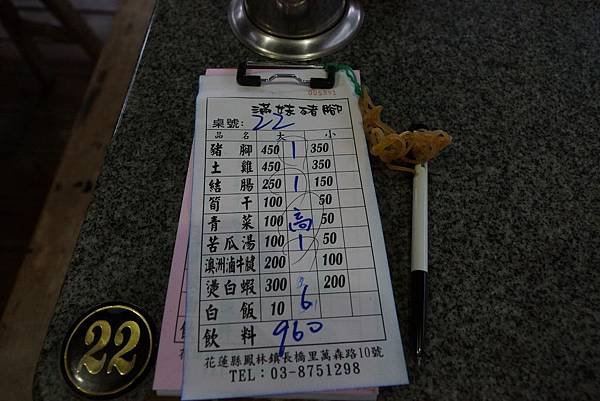 005391
滿妹豬腳
桌號: 22
品 名 大 小
豬 腳 450 1 350
土 雞 450 350
結 腸 250 1 150
筍 干 100 50
青 菜 100 高 50
苦瓜湯 100 1 50
澳洲滷牛腱 200 100
燙白蝦 300 200
白 飯 10 6
飲 料 960
花蓮縣鳳林鎮長橋里萬森路10號
TEL：03-8751298
22